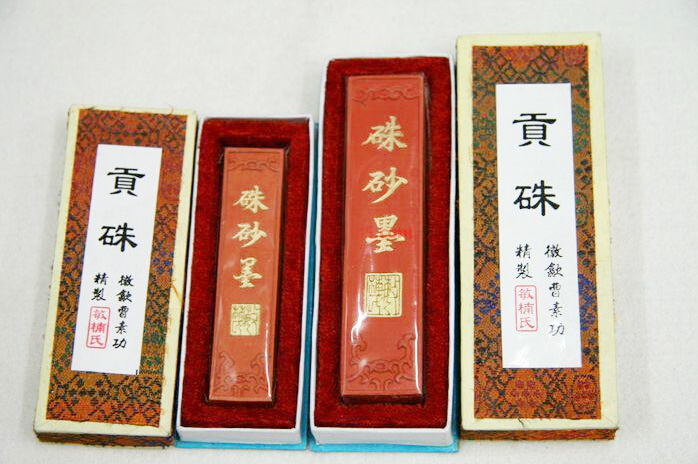 貢硃
徽歙曹素功
精製
敏楠氏
硃砂墨
硃砂墨
貢硃
徽歙曹素功
精製
敏楠氏